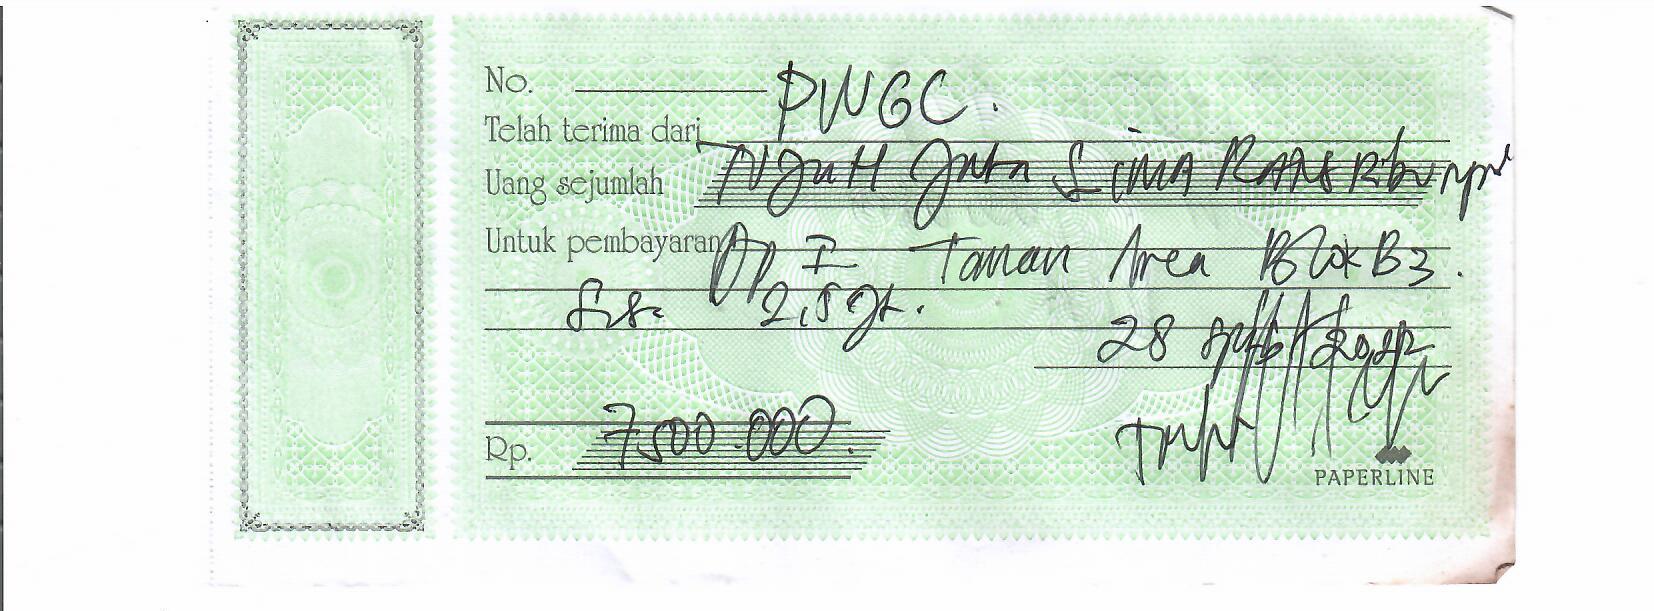 No. PWGC.
Telah terima dari
Uang sejumlah Tujuh Juta Lima Ratus Ribu rupiah
Untuk pembayaran Dp I Tanah Area Blok B3.
Sisa 2,5 Jt.
28 2022
Rp. 7.500.000.
PAPERLINE